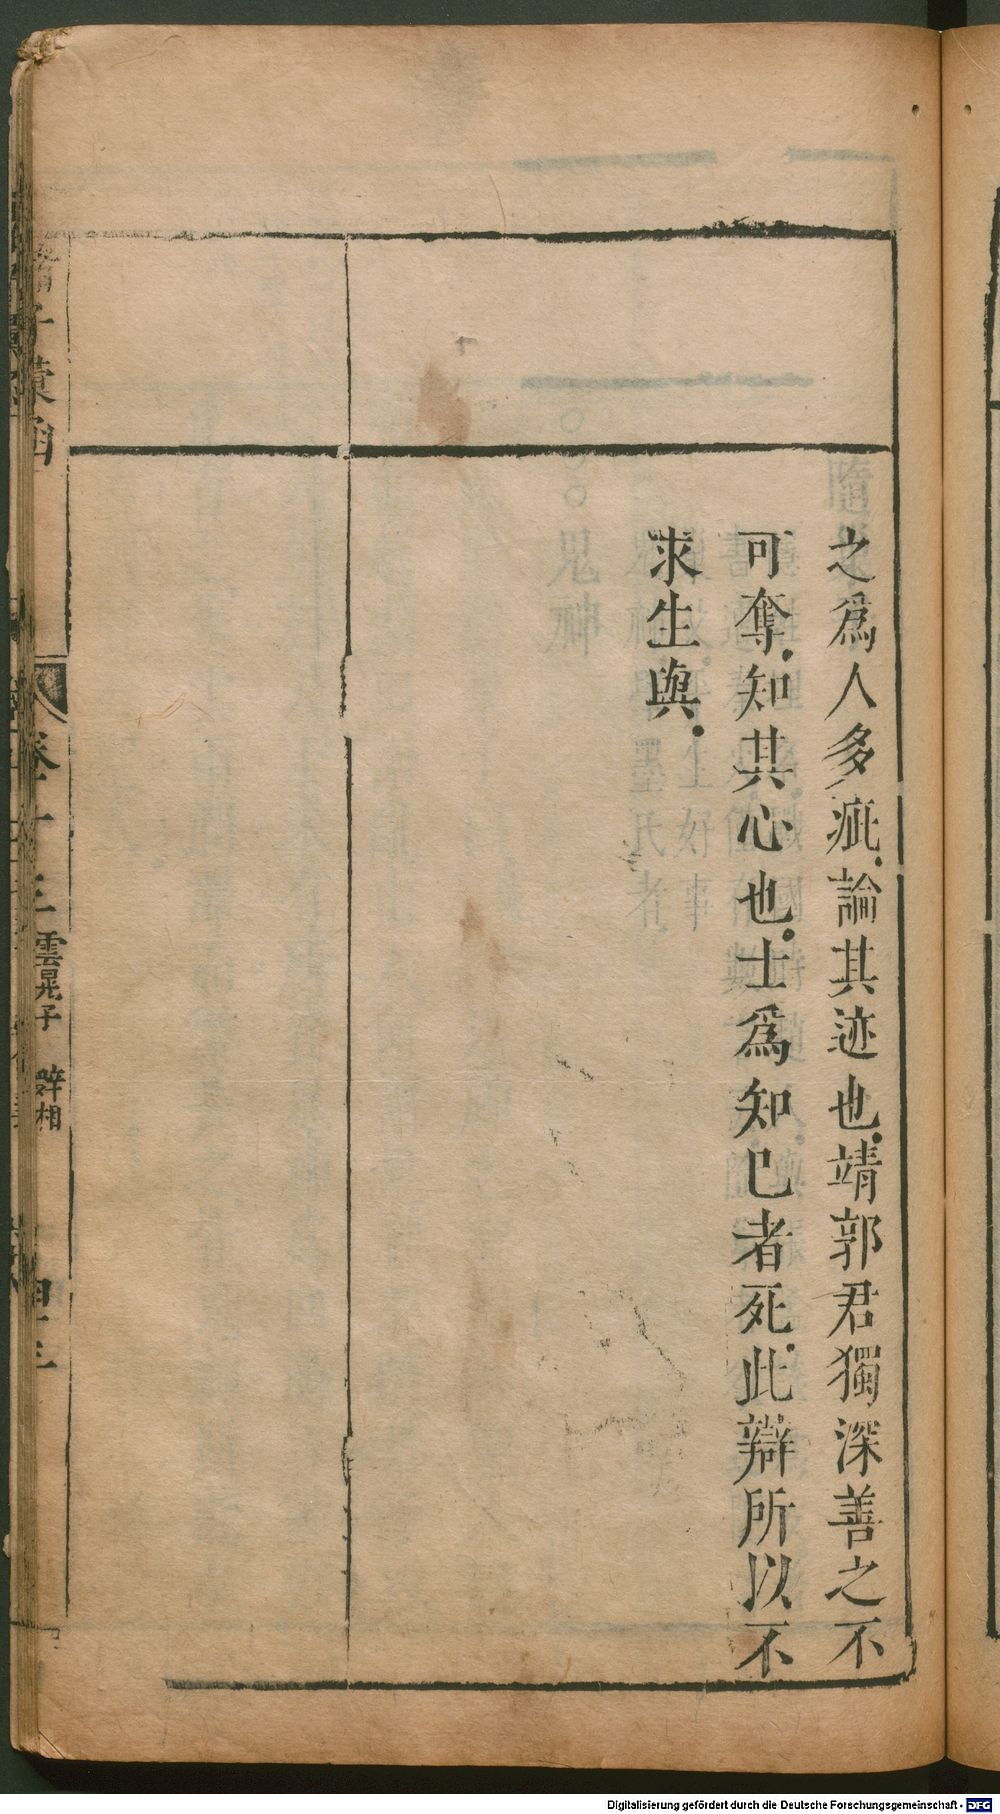 之爲人多疵論其迹也靖郭君獨深善之不
可奪知其心也士爲知已者死此辯所以不
求生與
諸子彙函
卷十三
雲晃子
辟相
Digitalisierung gefördert durch die Deutsche Forschungsgemeinschaft - DFG